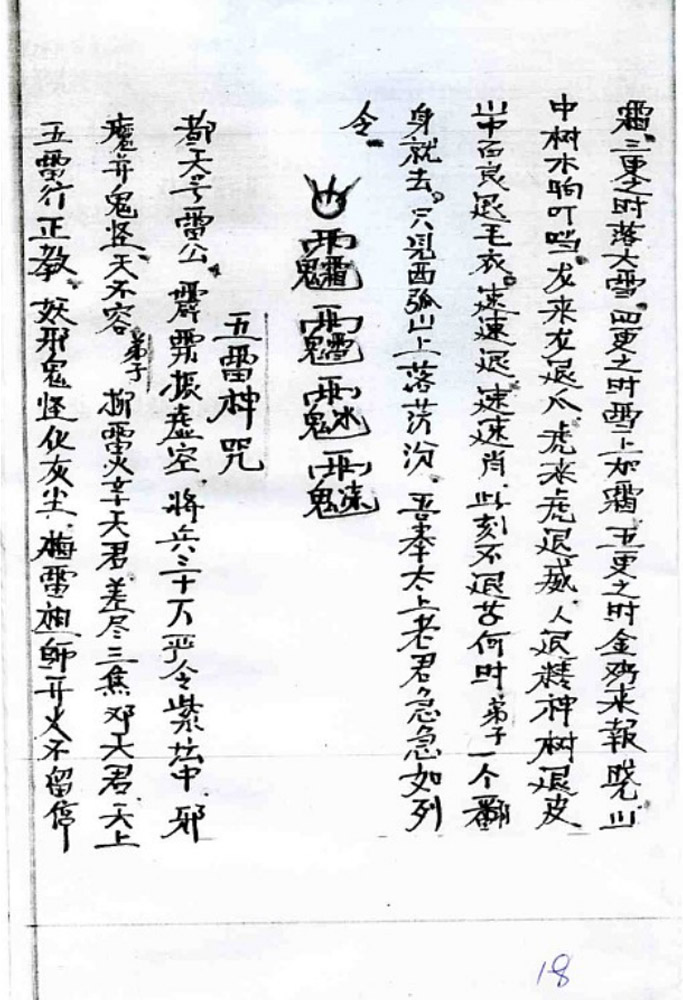 霜、三更之时落大雪、四更之时雪上加霜、五更之时金鸡来報晓、山
中树木响叮当、龙来龙退爪、虎来虎退威、人退精神树退皮、
山中百良退毛衣。速速退速速肖、此刻不退苦何时、弟子一个翻
身就去。只見西弥山上落芬汾、吾奉太上老君急急如列
令。
五雷神咒
都天号雷公、霹雳振虚空、将兵三十万严令紫坛中、邪
魔并鬼怪、天不容、弟子 柳雷火辛天君差尽三焦邓大君、天上
五雷行正教、妖邪鬼怪化灰尘、梅雷祖師开火不留停
18